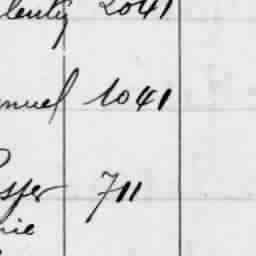 lenty 2041
nuel 1041
sper 711
nie